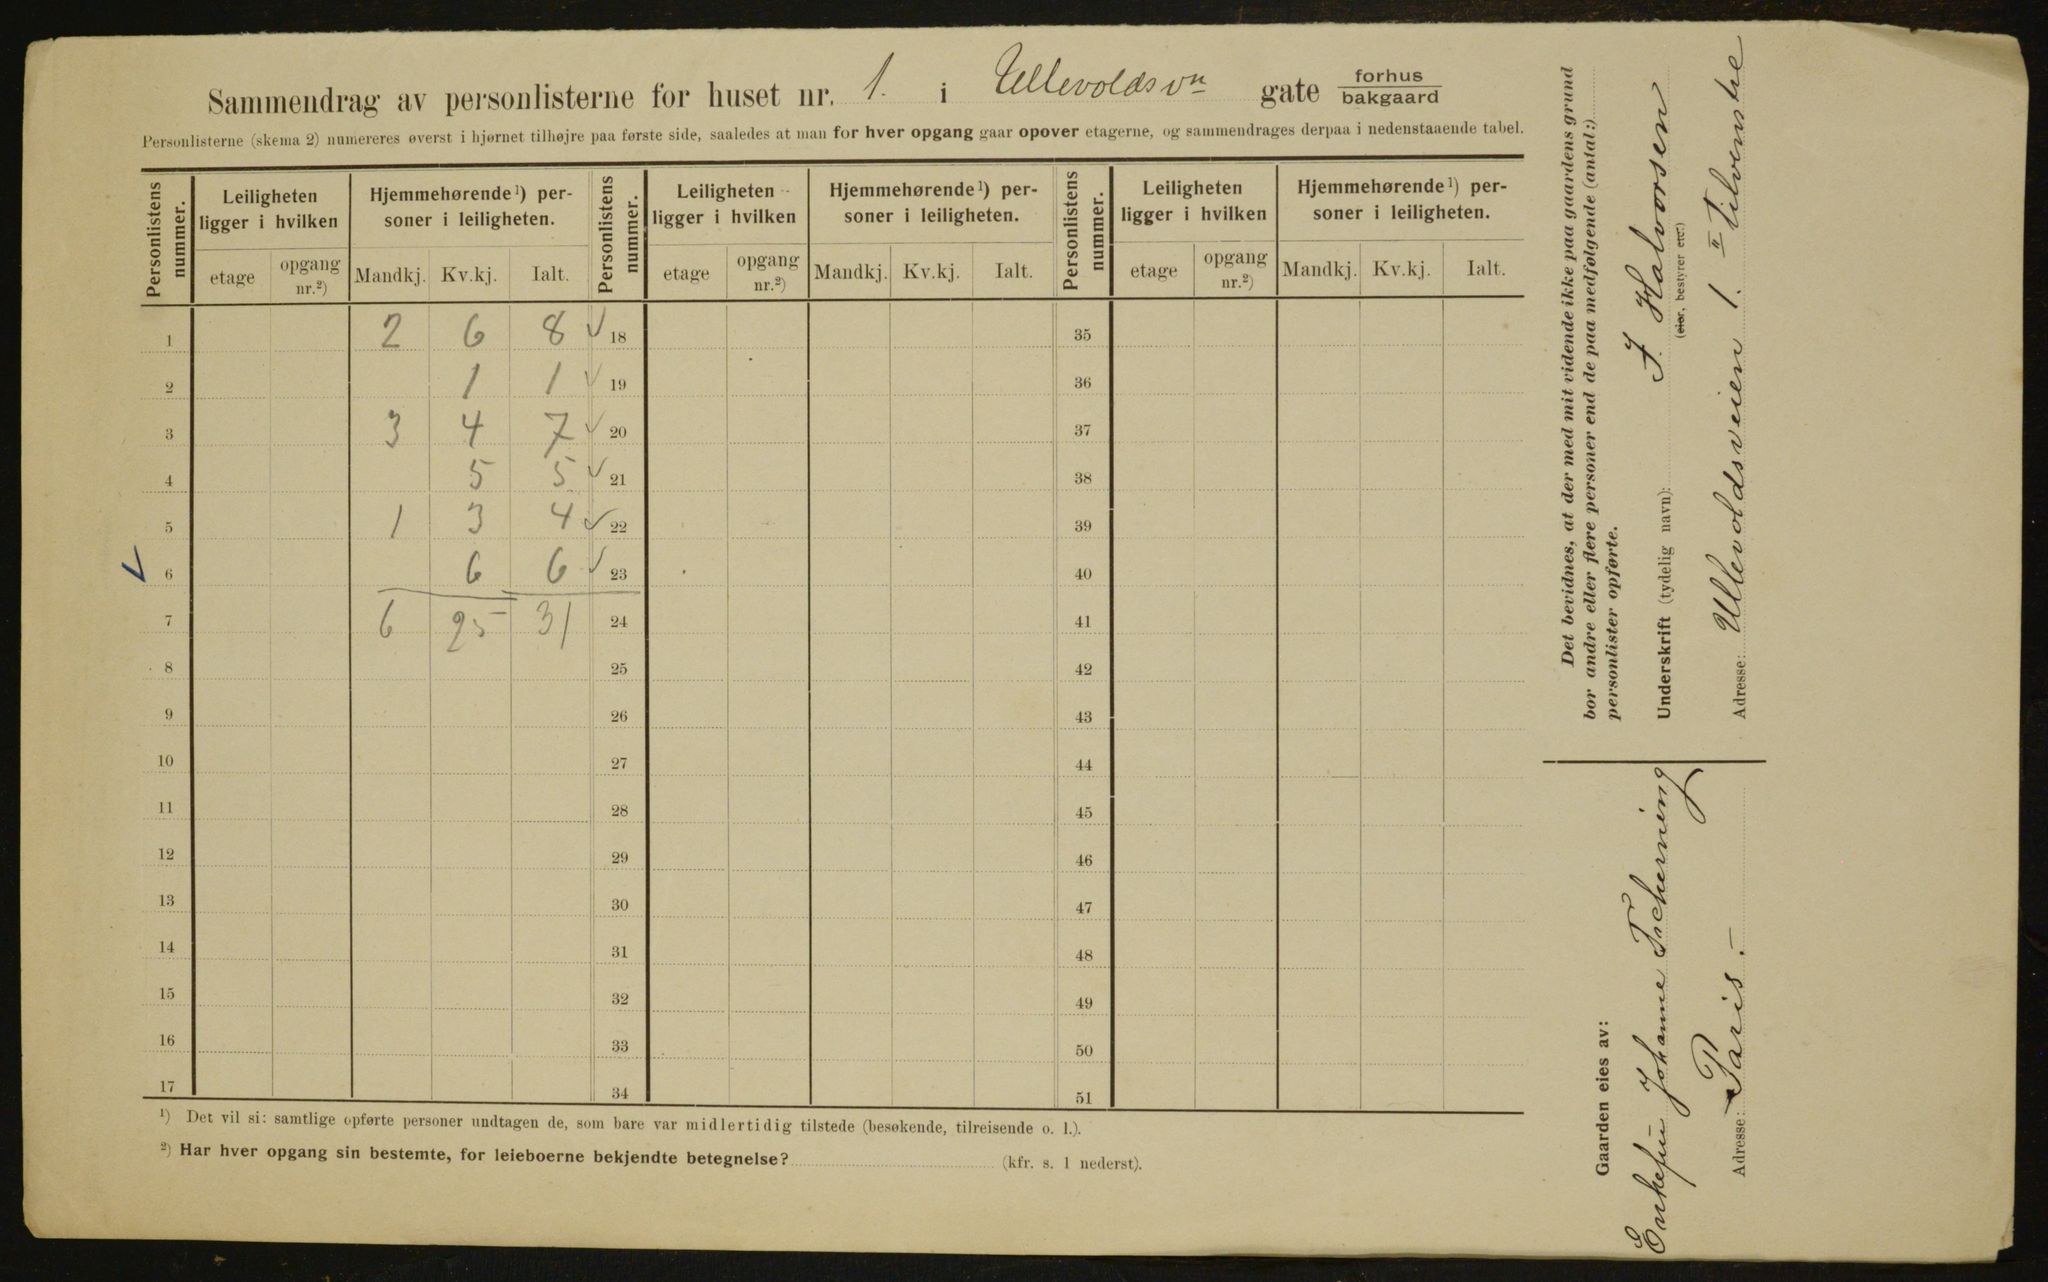 Sammendrag av personlisterne for huset nr. 1. i Ullevoldsvn gate forhus bakgaard
Personlisterne (skema 2) numereres øverst i hjørnet tilhøjre paa første side, saaledes at man for hver opgang gaar opover etagerne, og sammendrages derpaa i nedenstaaende tabel.
Personlistens nummer. Leiligheten ligger i hvilken Hjemmehørende ¹) personer i leiligheten. Personlistens nummer. Leiligheten ligger i hvilken Hjemmehørende ¹) personer i leiligheten. Personlistens nummer. Leiligheten ligger i hvilken Hjemmehørende ¹) personer i leiligheten.
etage opgang nr.²) Mandkj. Kv.kj. Ialt. etage opgang nr.²) Mandkj. Kv.kj. Ialt. etage opgang nr.²) Mandkj. Kv.kj. Ialt.
1 2 6 8 ✓ 18 35
2 1 1 ✓ 19 36
3 3 4 7 ✓ 20 37
4 5 5 ✓ 21 38
5 1 3 4 ✓ 22 39
✓ 6 6 6 ✓ 23 40
7 6 25 31 24 41
8 25 42
9 26 43
10 27 44
11 28 45
12 29 46
13 30 47
14 31 48
15 32 49
16 33 50
17 34 51
¹) Det vil si: samtlige opførte personer undtagen de, som bare var midlertidig tilstede (besøkende, tilreisende o. l.).
²) Har hver opgang sin bestemte, for leieboerne bekjendte betegnelse? (kfr. s. 1 nederst).
Det bevidnes, at der med mit vidende ikke paa gaardens grund
bor andre eller flere personer end de paa medfølgende (antal:)
personlister opførte.
Underskrift (tydelig navn): J. Halvorsen
(eier, bestyrer etc.)
Adresse: Ullevoldsveien 1. II tilvenstre
Gaarden eies av:
Enkefru Johanne Tscherning
Adresse: Paris.-